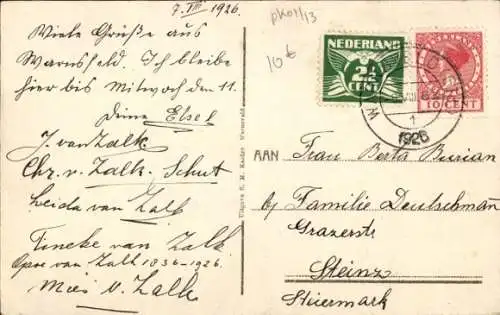 7. VIII 1926.
Viele Grüße aus
Warnsfeld. Ich bleibe
hier bis Mittwoch den 11.
Deine Elsel
J. van Zalk.
Chr. v. Zalk-Schut
Leida van Zalk
Tineke van Zalk
Opoe van Zalk 1836-1926.
Mies v. Zalk
Uitgave S. M. Kaulge Warnsveld
10 6
NEDERLAND
2½
CENT
10 CENT
1
1926
AAN Frau Berta Burian
bij Familie Deutschman
Grazerstr
Steinz
Steiermark